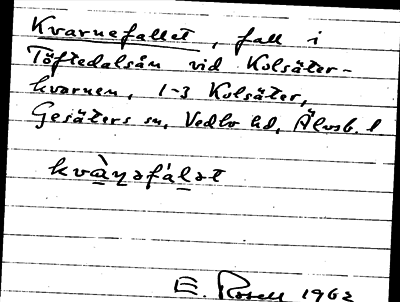 Kvarnefallet, fall i
Töftedalsån vid Kolsäter-
kvarnen, 1-3 Kolsäter,
Gesäters sn, Vedbo hd, Älvsb. l
kvànəfálət
E. Rosell 1962